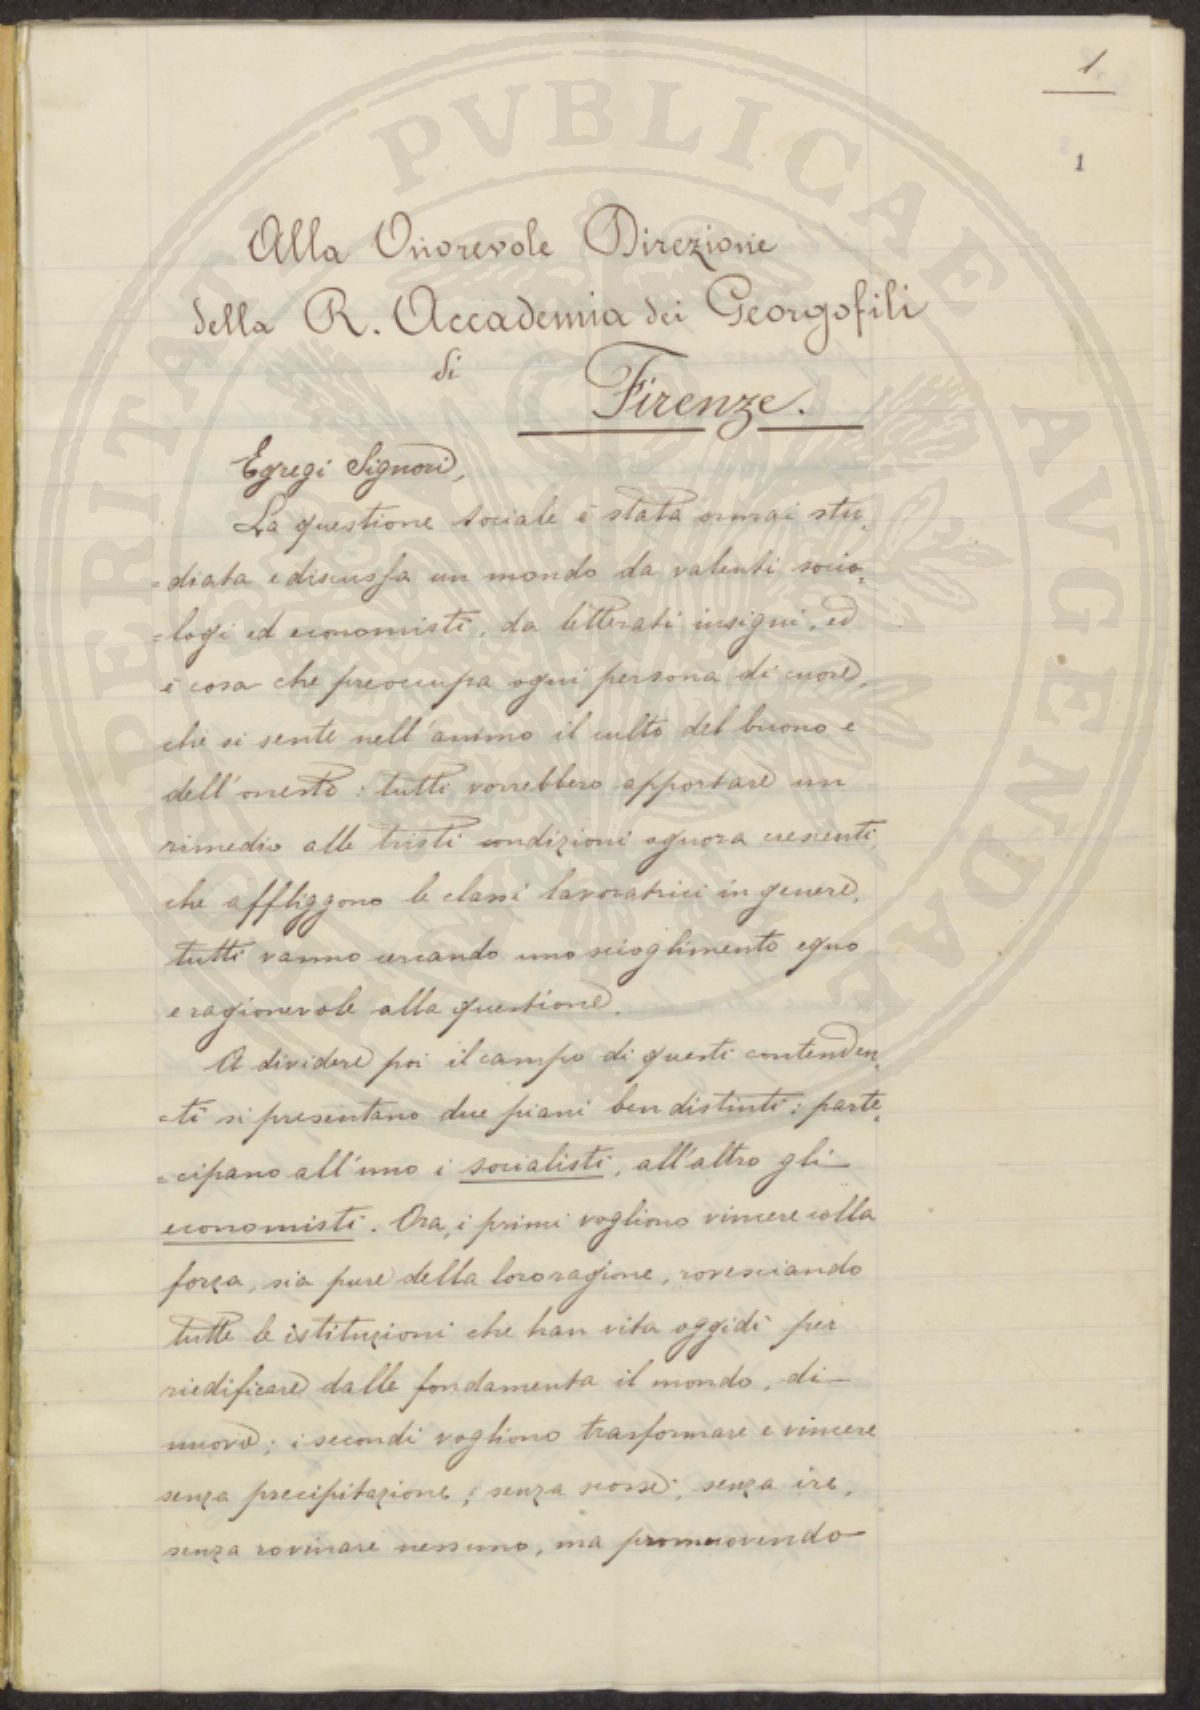 1
1
Alla Onorevole Direzione
della R. Accademia dei Georgofili
di Firenze.
Egregi Signori,
La questione sociale è stata ormai stu„
„diata e discussa un mondo da valenti socio„
„logi ed economisti, da letterati insigni, ed
è cosa che preoccupa ogni persona di cuore,
che si sente nell'animo il culto del buono e
dell'onesto: tutti vorrebbero apportare un
rimedio alle tristi condizioni ognora crescenti,
che affliggono le classi lavoratrici in genere,
tutti vanno cercando uno scioglimento equo
e ragionevole alla questione.
A dividere poi il campo di questi contenden„
„ti si presentano due piani ben distinti: parte„
„cipano all'uno i socialisti, all'altro gli
economisti. Ora, i primi vogliono vincere colla
forza, sia pure della loro ragione, rovesciando
tutte le istituzioni che han vita oggidì per
riedificare dalle fondamenta il mondo, di
nuovo; i secondi vogliono trasformare e vincere
senza precipitazione, senza scosse, senza ire,
senza rovinare nessuno, ma promuovendo
PERITATE PVBLICAE AVGENDAE